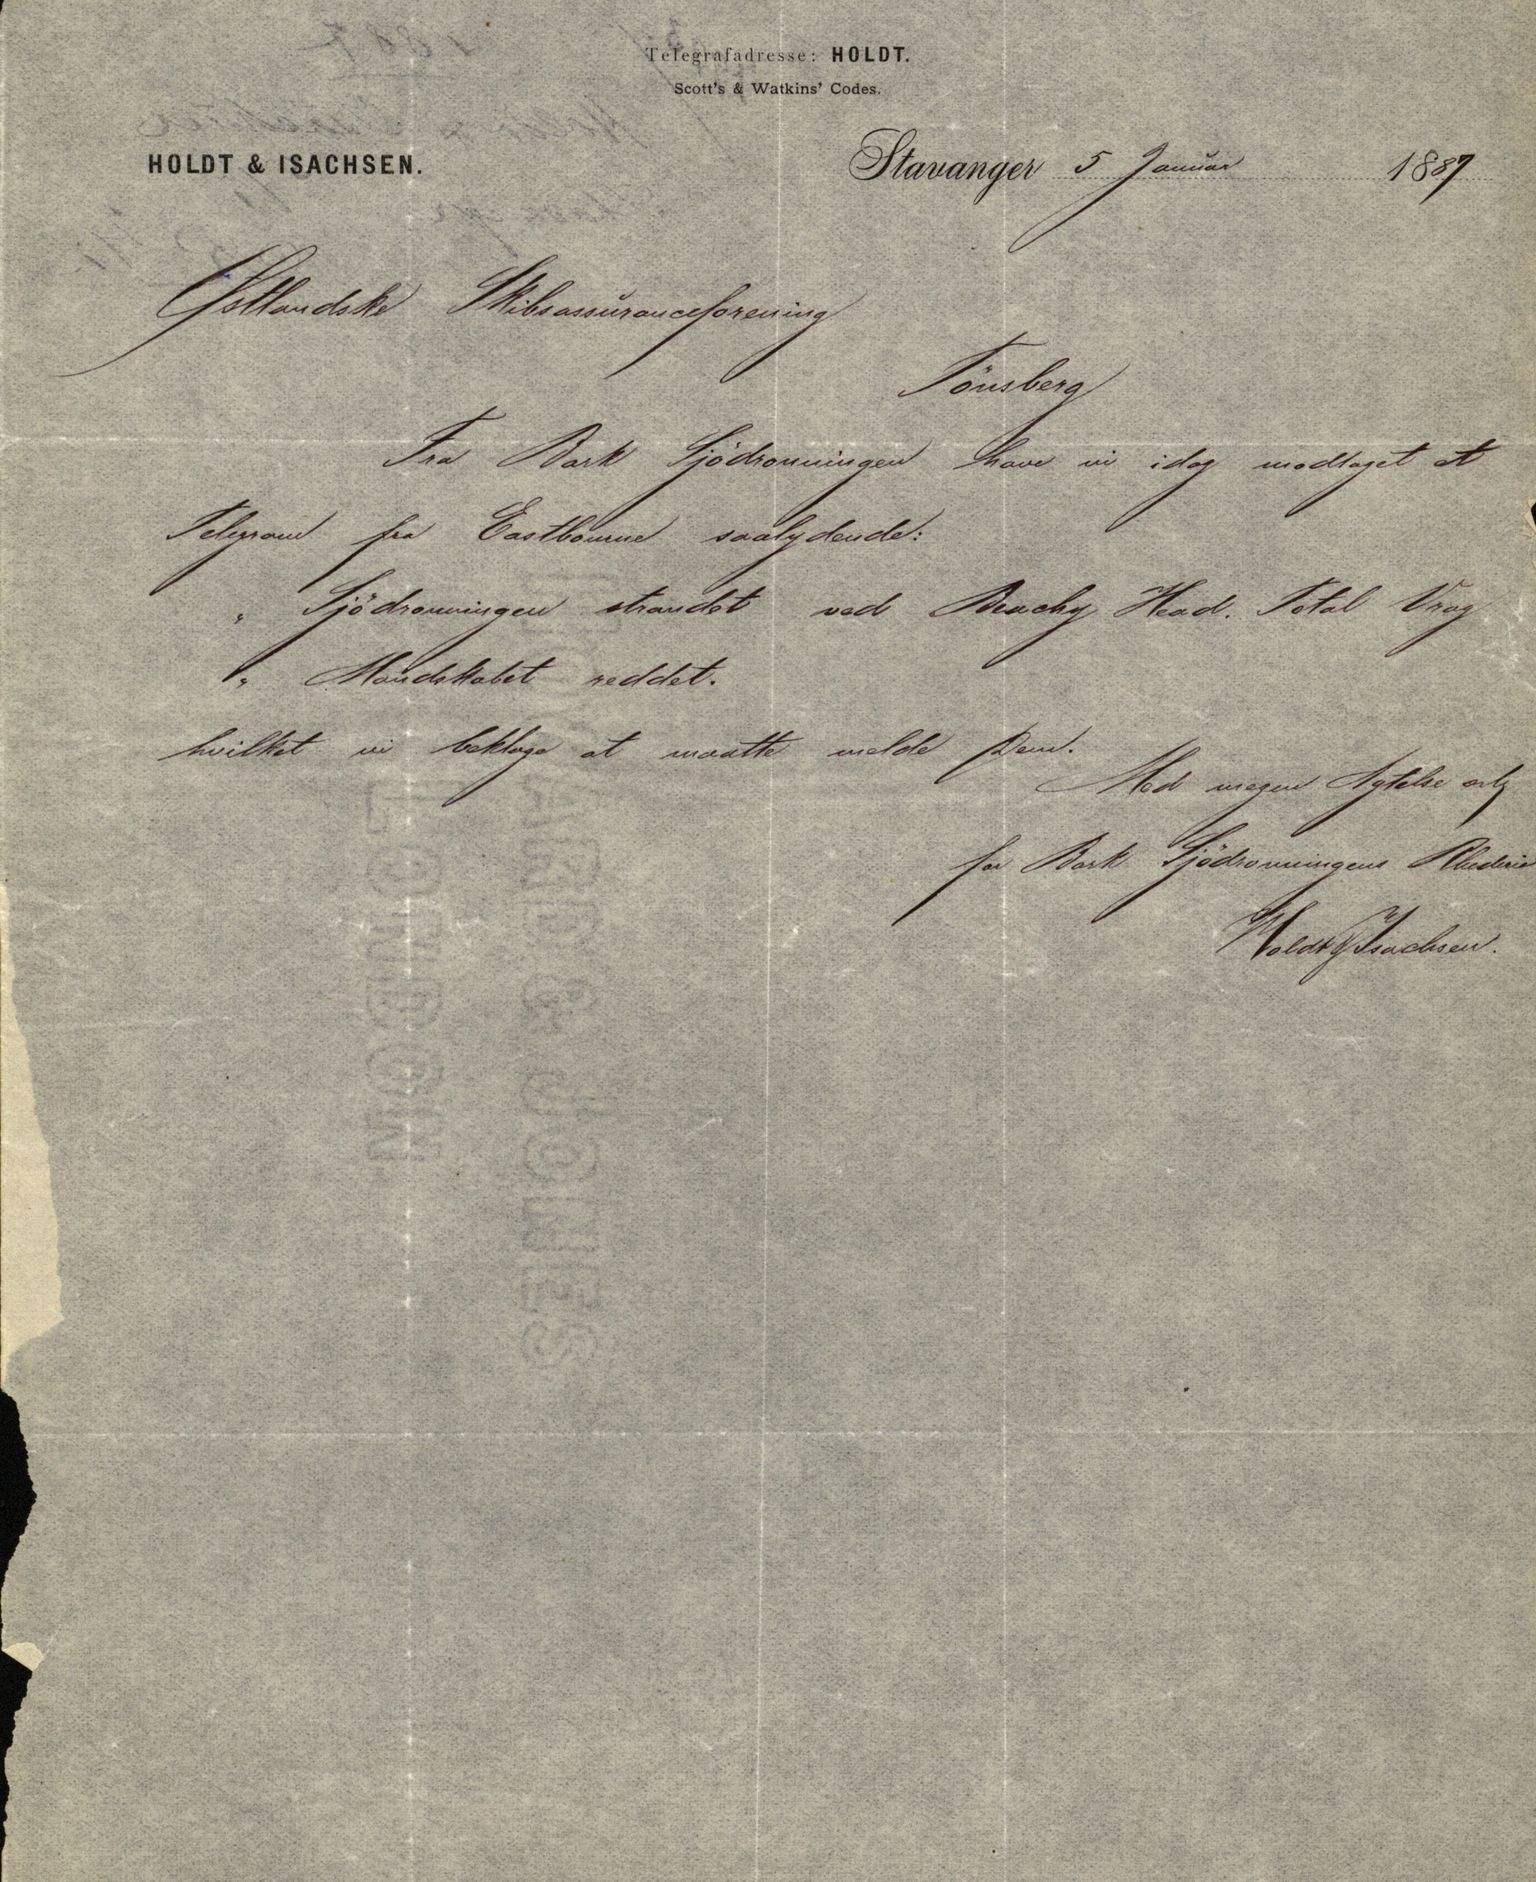 Telegrafadresse: HOLDT.
Scott's & Watkins' Codes.
HOLDT & ISACHSEN.
Stavanger 5 Januar 1887
Østlandske Skibsassuranceforening
Tönsberg
Fra Bark Sjödronningen have vi idag modtaget et
Telegram fra Eastbourne saalydende:
" Sjödronningen strandet ved Beachy Head. Total Vrag
" Mandskabet reddet.
hvilket vi beklage at maatte melde Dem.
Med megen Agtelse erb
for Bark Sjödronningens Rhederie
Holdt & Isachsen.